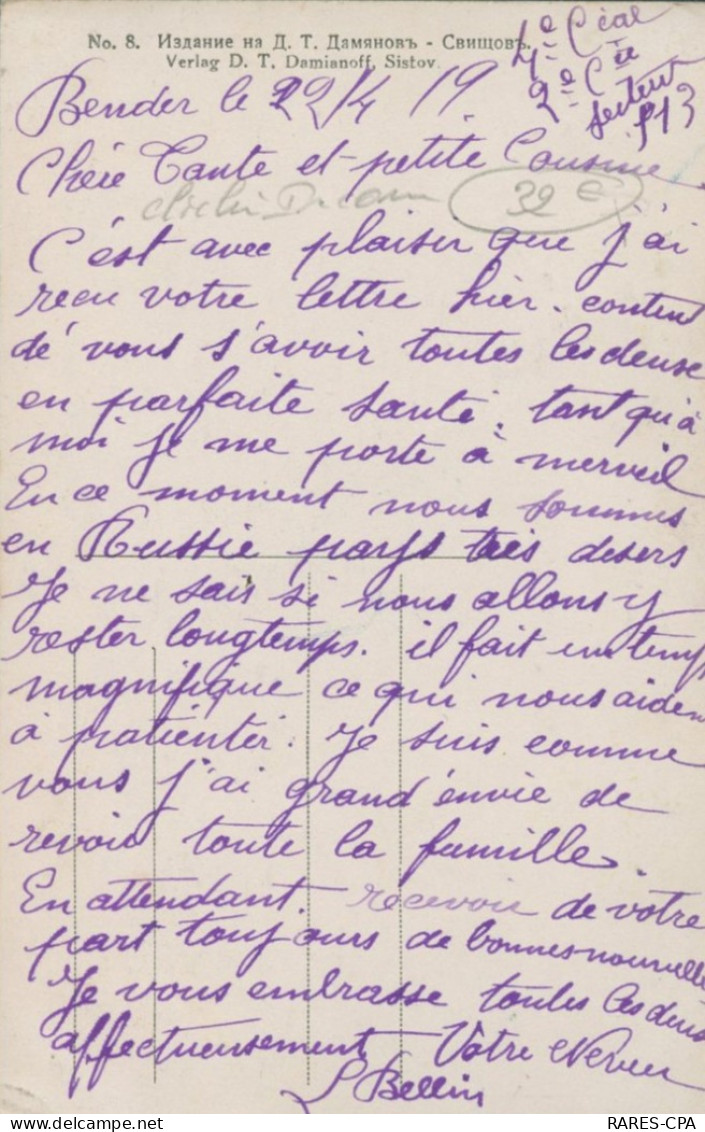 No. 8. Издание на Д. Т. Дамяновъ - Свищовъ.
Verlag D. T. Damianoff, Sistov.
4e
2e Cie
secteur
513
Bender le 22/4 19
Chère Tante et petite Cousine
32 €
C'est avec plaisir que j'ai
recu votre lettre hier. content
de vous s'avoir toutes les deuse
en parfaite santé. tant qu'à
moi je me porte à merveil
En ce moment nous sommes
en Russie pays très desers
Je ne sais si nous allons y
rester longtemps. il fait un temps
magnifique ce qui nous aiden
à patienter. Je suis comme
vous j'ai grand envie de
revoir toute la famille.
En attendant recevoir de votre
part toujours de bonnes nouvelle
Je vous embrasse toutes les deus
affectueusement Votre Neveu
L Bellin
RARES-CPA